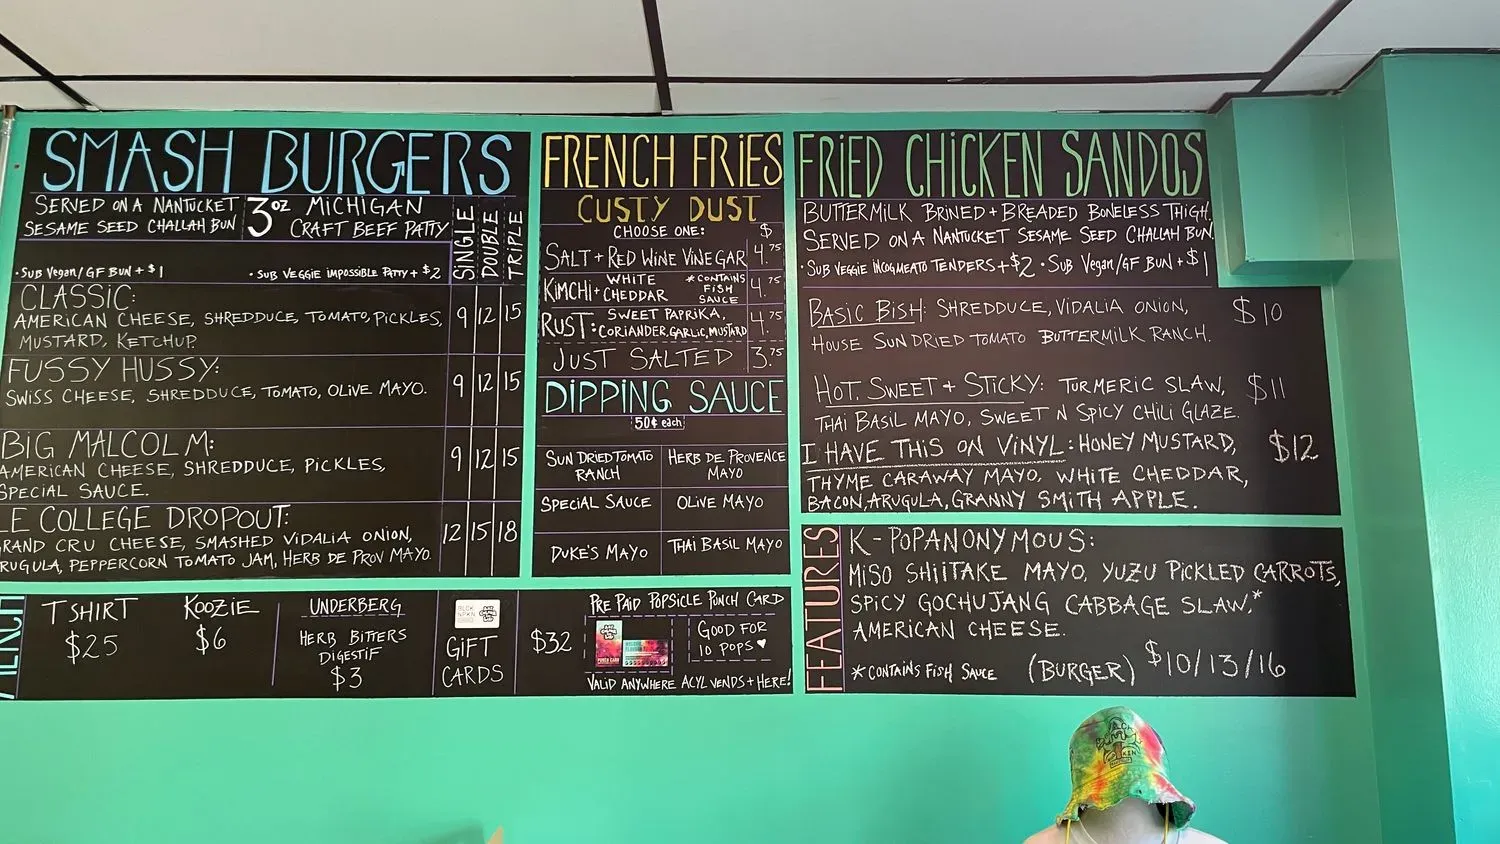 SMASH BURGERS
SERVED ON A NANTUCKET
SESAME SEED CHALLAH BUN
3 OZ MICHIGAN
CRAFT BEEF PATTY
SINGLE
DOUBLE
TRIPLE
• SUB VEGAN/GF BUN + $1
• SUB VEGGIE IMPOSSIBLE PATTY + $2
CLASSIC:
AMERICAN CHEESE, SHREDDUCE, TOMATO, PICKLES,
MUSTARD, KETCHUP.
9 12 15
FUSSY HUSSY:
SWISS CHEESE, SHREDDUCE, TOMATO, OLIVE MAYO.
9 12 15
BIG MALCOLM:
AMERICAN CHEESE, SHREDDUCE, PICKLES,
SPECIAL SAUCE.
9 12 15
LE COLLEGE DROPOUT:
GRAND CRU CHEESE, SMASHED VIDALIA ONION,
RUGULA, PEPPERCORN TOMATO JAM, HERB DE PROV MAYO.
12 15 18
FRENCH FRIES
CUSTY DUST
CHOOSE ONE: $
SALT + RED WINE VINEGAR 4.75
KIMCHI + WHITE CHEDDAR
*CONTAINS FISH SAUCE
4.75
RUST: SWEET PAPRIKA,
CORIANDER, GARLIC, MUSTARD
4.75
JUST SALTED 3.75
DIPPING SAUCE
50¢ each
SUN DRIED TOMATO
RANCH
HERB DE PROVENCE
MAYO
SPECIAL SAUCE
OLIVE MAYO
DUKE'S MAYO
THAI BASIL MAYO
FRIED CHICKEN SANDOS
BUTTERMILK BRINED + BREADED BONELESS THIGH,
SERVED ON A NANTUCKET SESAME SEED CHALLAH BUN.
• SUB VEGGIE INCOGMEATO TENDERS + $2 • SUB VEGAN/GF BUN + $1
BASIC BISH: SHREDDUCE, VIDALIA ONION,
HOUSE SUN DRIED TOMATO BUTTERMILK RANCH.
$10
HOT, SWEET + STICKY: TURMERIC SLAW,
THAI BASIL MAYO, SWEET N SPICY CHILI GLAZE.
$11
I HAVE THIS ON VINYL: HONEY MUSTARD,
THYME CARAWAY MAYO, WHITE CHEDDAR,
BACON, ARUGULA, GRANNY SMITH APPLE.
$12
FEATURES
K-POPANONYMOUS:
MISO SHIITAKE MAYO, YUZU PICKLED CARROTS,
SPICY GOCHUJANG CABBAGE SLAW,*
AMERICAN CHEESE.
*CONTAINS FISH SAUCE (BURGER) $10/13/16
MERCH
T SHIRT
$25
KOOZIE
$6
UNDERBERG
HERB BITTERS
DIGESTIF
$3
GIFT
CARDS
$32
PRE PAID POPSICLE PUNCH CARD
GOOD FOR
10 POPS ♥
VALID ANYWHERE ACYL VENDS + HERE!